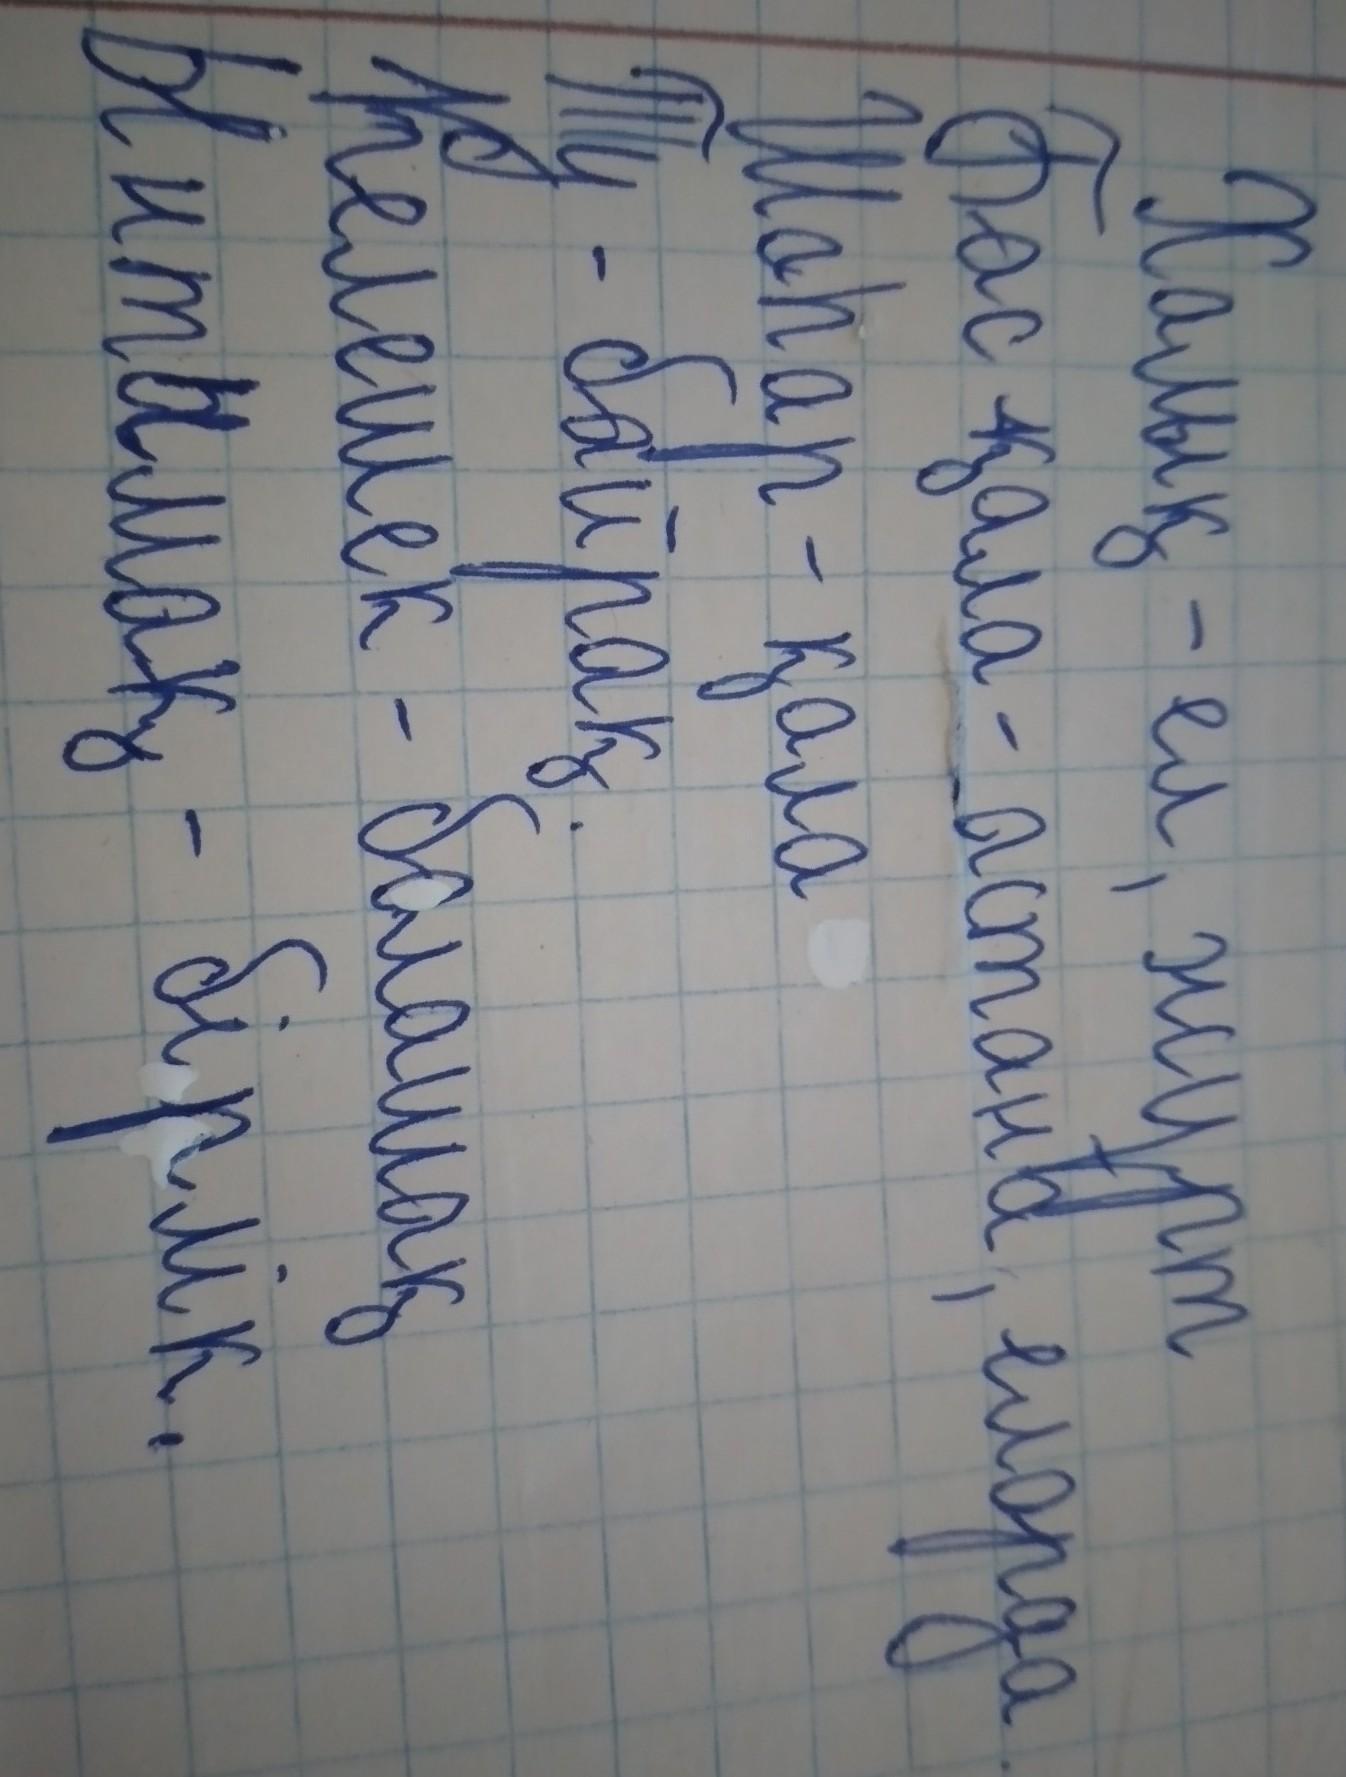 Халық - ел, жұрт
Бас қала - астана, елорда.
Шаһар - қала
Ту - байрақ.
Келешек - болашақ
Ынтымақ - бірлік.